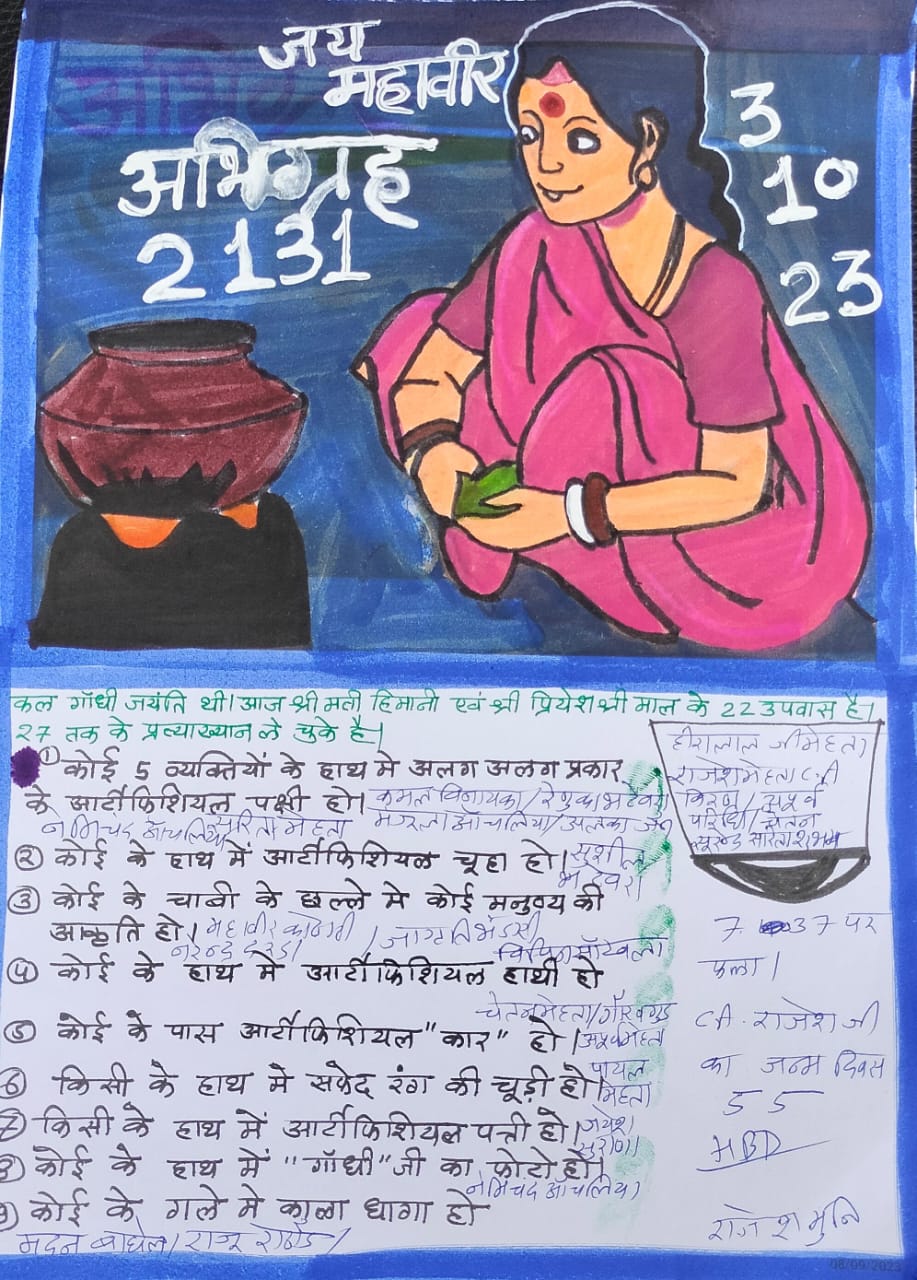 जय
महावीर
अभिग्रह
2131
3
10
23
कल गॉंधी जयंति थी। आज श्री मती हिमानी एवं श्री प्रियेश श्री माल के 22 उपवास है।
27 तक के प्रत्याख्यान ले चुके है।
① कोई 5 व्यक्तियों के हाथ मे अलग अलग प्रकार
के आर्टीफिशियल पक्षी हो। कमल विनायका/रेणुका भटेवरा
नेमिचंद ऑचलिया/सरिता मेहता मंजुला ऑचलिया/अलका जैन
② कोई के हाथ में आर्टीफिशियल चूहा हो। सुशील
भटेवरा
③ कोई के चाबी के छल्ले मे कोई मनुष्य की
आकृति हो। महावीर / जागृति भंडारी
नरेन्द्र दरडा
④ कोई के हाथ मे आर्टीफिशियल हाथी हो
विपिन सॉखला
चेतन मेहता/गौरव
⑤ कोई के पास आर्टीफिशियल "कार" हो। अपूर्व मेहता
⑥ किसी के हाथ मे सफेद रंग की चूड़ी हो। पायल
मेहता
⑦ किसी के हाथ में आर्टीफिशियल पत्ती हो। जयेश
सुराणा
⑧ कोई के हाथ में "गॉंधी" जी का फोटो हो।
नेमिचंद ऑचलिया
⑨ कोई के गले मे काला धागा हो
मदन बाघेल/राजू राठोड/
हीरालाल जी मेहता
राजेश मेहता CA
किरण/अपूर्व
परिधि/चेतन
सरिता
7 37 पर
फला।
CA. राजेश जी
का जन्म दिवस
55
HBD
राजेश मुनि
08/09/2023